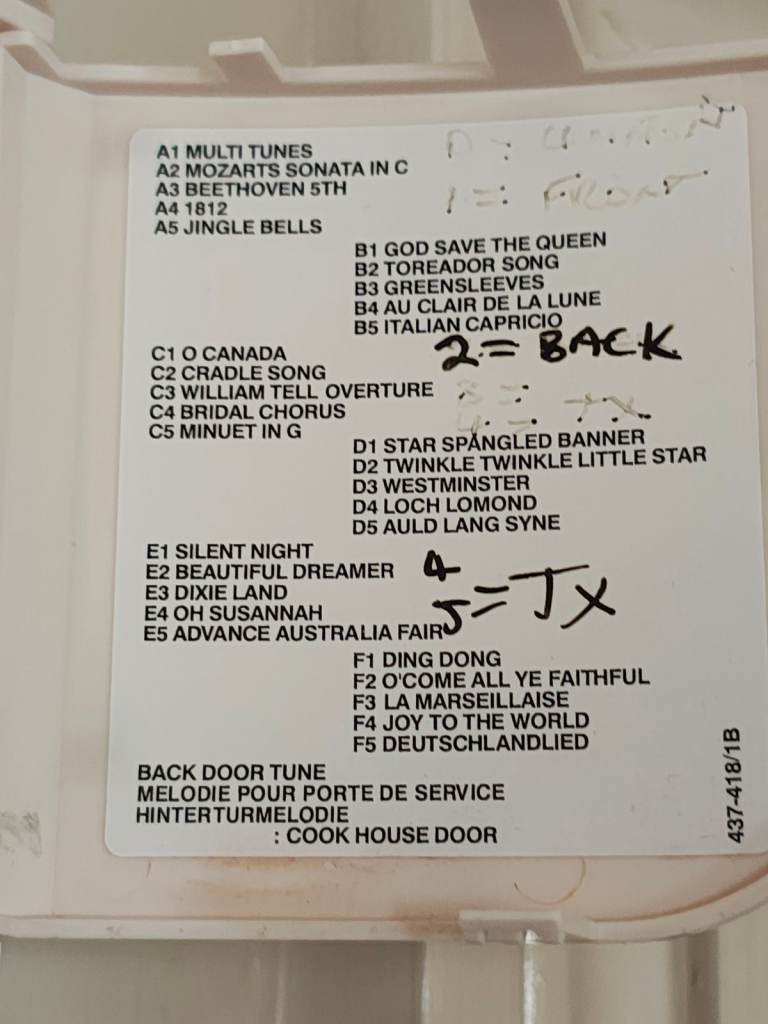 A1 MULTI TUNES
A2 MOZARTS SONATA IN C
A3 BEETHOVEN 5TH
A4 1812
A5 JINGLE BELLS
1 = FRONT
B1 GOD SAVE THE QUEEN
B2 TOREADOR SONG
B3 GREENSLEEVES
B4 AU CLAIR DE LA LUNE
B5 ITALIAN CAPRICIO
2 = BACK
C1 O CANADA
C2 CRADLE SONG
C3 WILLIAM TELL OVERTURE
C4 BRIDAL CHORUS
C5 MINUET IN G
D1 STAR SPANGLED BANNER
D2 TWINKLE TWINKLE LITTLE STAR
D3 WESTMINSTER
D4 LOCH LOMOND
D5 AULD LANG SYNE
E1 SILENT NIGHT
E2 BEAUTIFUL DREAMER
E3 DIXIE LAND
E4 OH SUSANNAH
E5 ADVANCE AUSTRALIA FAIR
4
5 = TX
F1 DING DONG
F2 O'COME ALL YE FAITHFUL
F3 LA MARSEILLAISE
F4 JOY TO THE WORLD
F5 DEUTSCHLANDLIED
BACK DOOR TUNE
MELODIE POUR PORTE DE SERVICE
HINTERTURMELODIE
: COOK HOUSE DOOR
437-418/1B